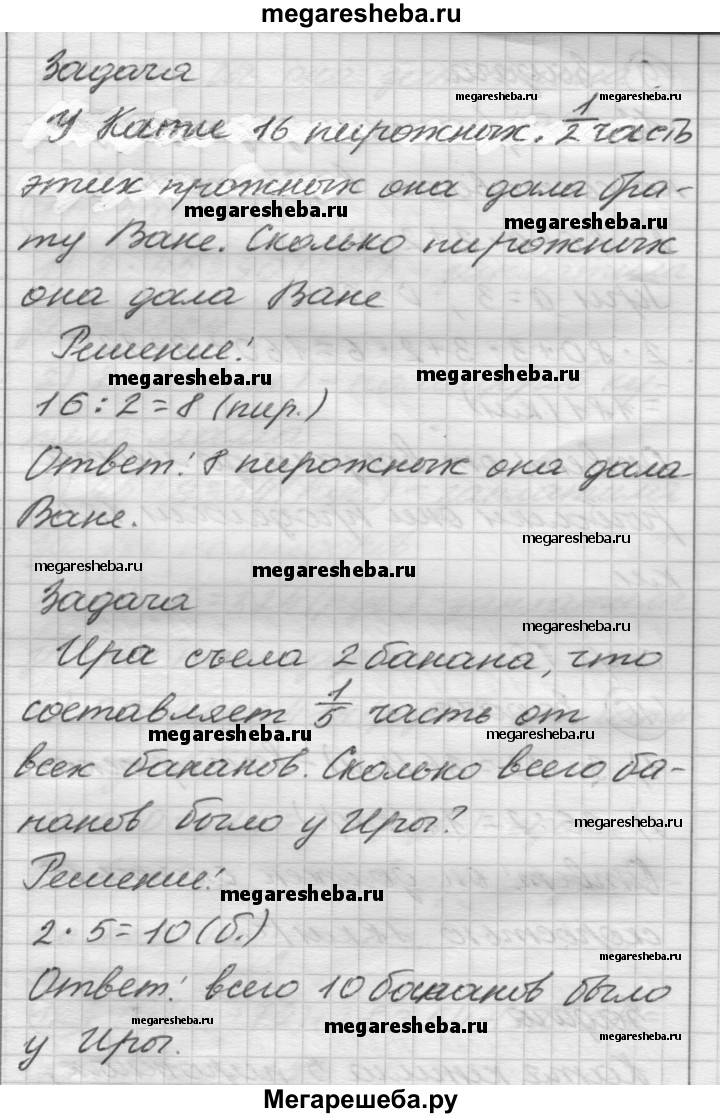 megaresheba.ru
Задача
megaresheba.ru megaresheba.ru
У Кати 16 пирожных. 1/2 часть
этих прожных она дала бра-
megaresheba.ru megaresheba.ru
ту Ване. Сколько пирожных
она дала Ване
Решение:
megaresheba.ru megaresheba.ru
16 : 2 = 8 (пир.)
Ответ: 8 пирожных она дала
Ване.
megaresheba.ru
megaresheba.ru megaresheba.ru
Задача
megaresheba.ru
Ира съела 2 банана, что
составляет 1/5 часть от
megaresheba.ru megaresheba.ru
всех бананов. Сколько всего ба-
нанов было у Иры?
megaresheba.ru
Решение:
megaresheba.ru
2 · 5 = 10 (б.)
megaresheba.ru
Ответ: всего 10 бананов было
megaresheba.ru megaresheba.ru megaresheba.ru
у Иры.
Мегарешеба.ру